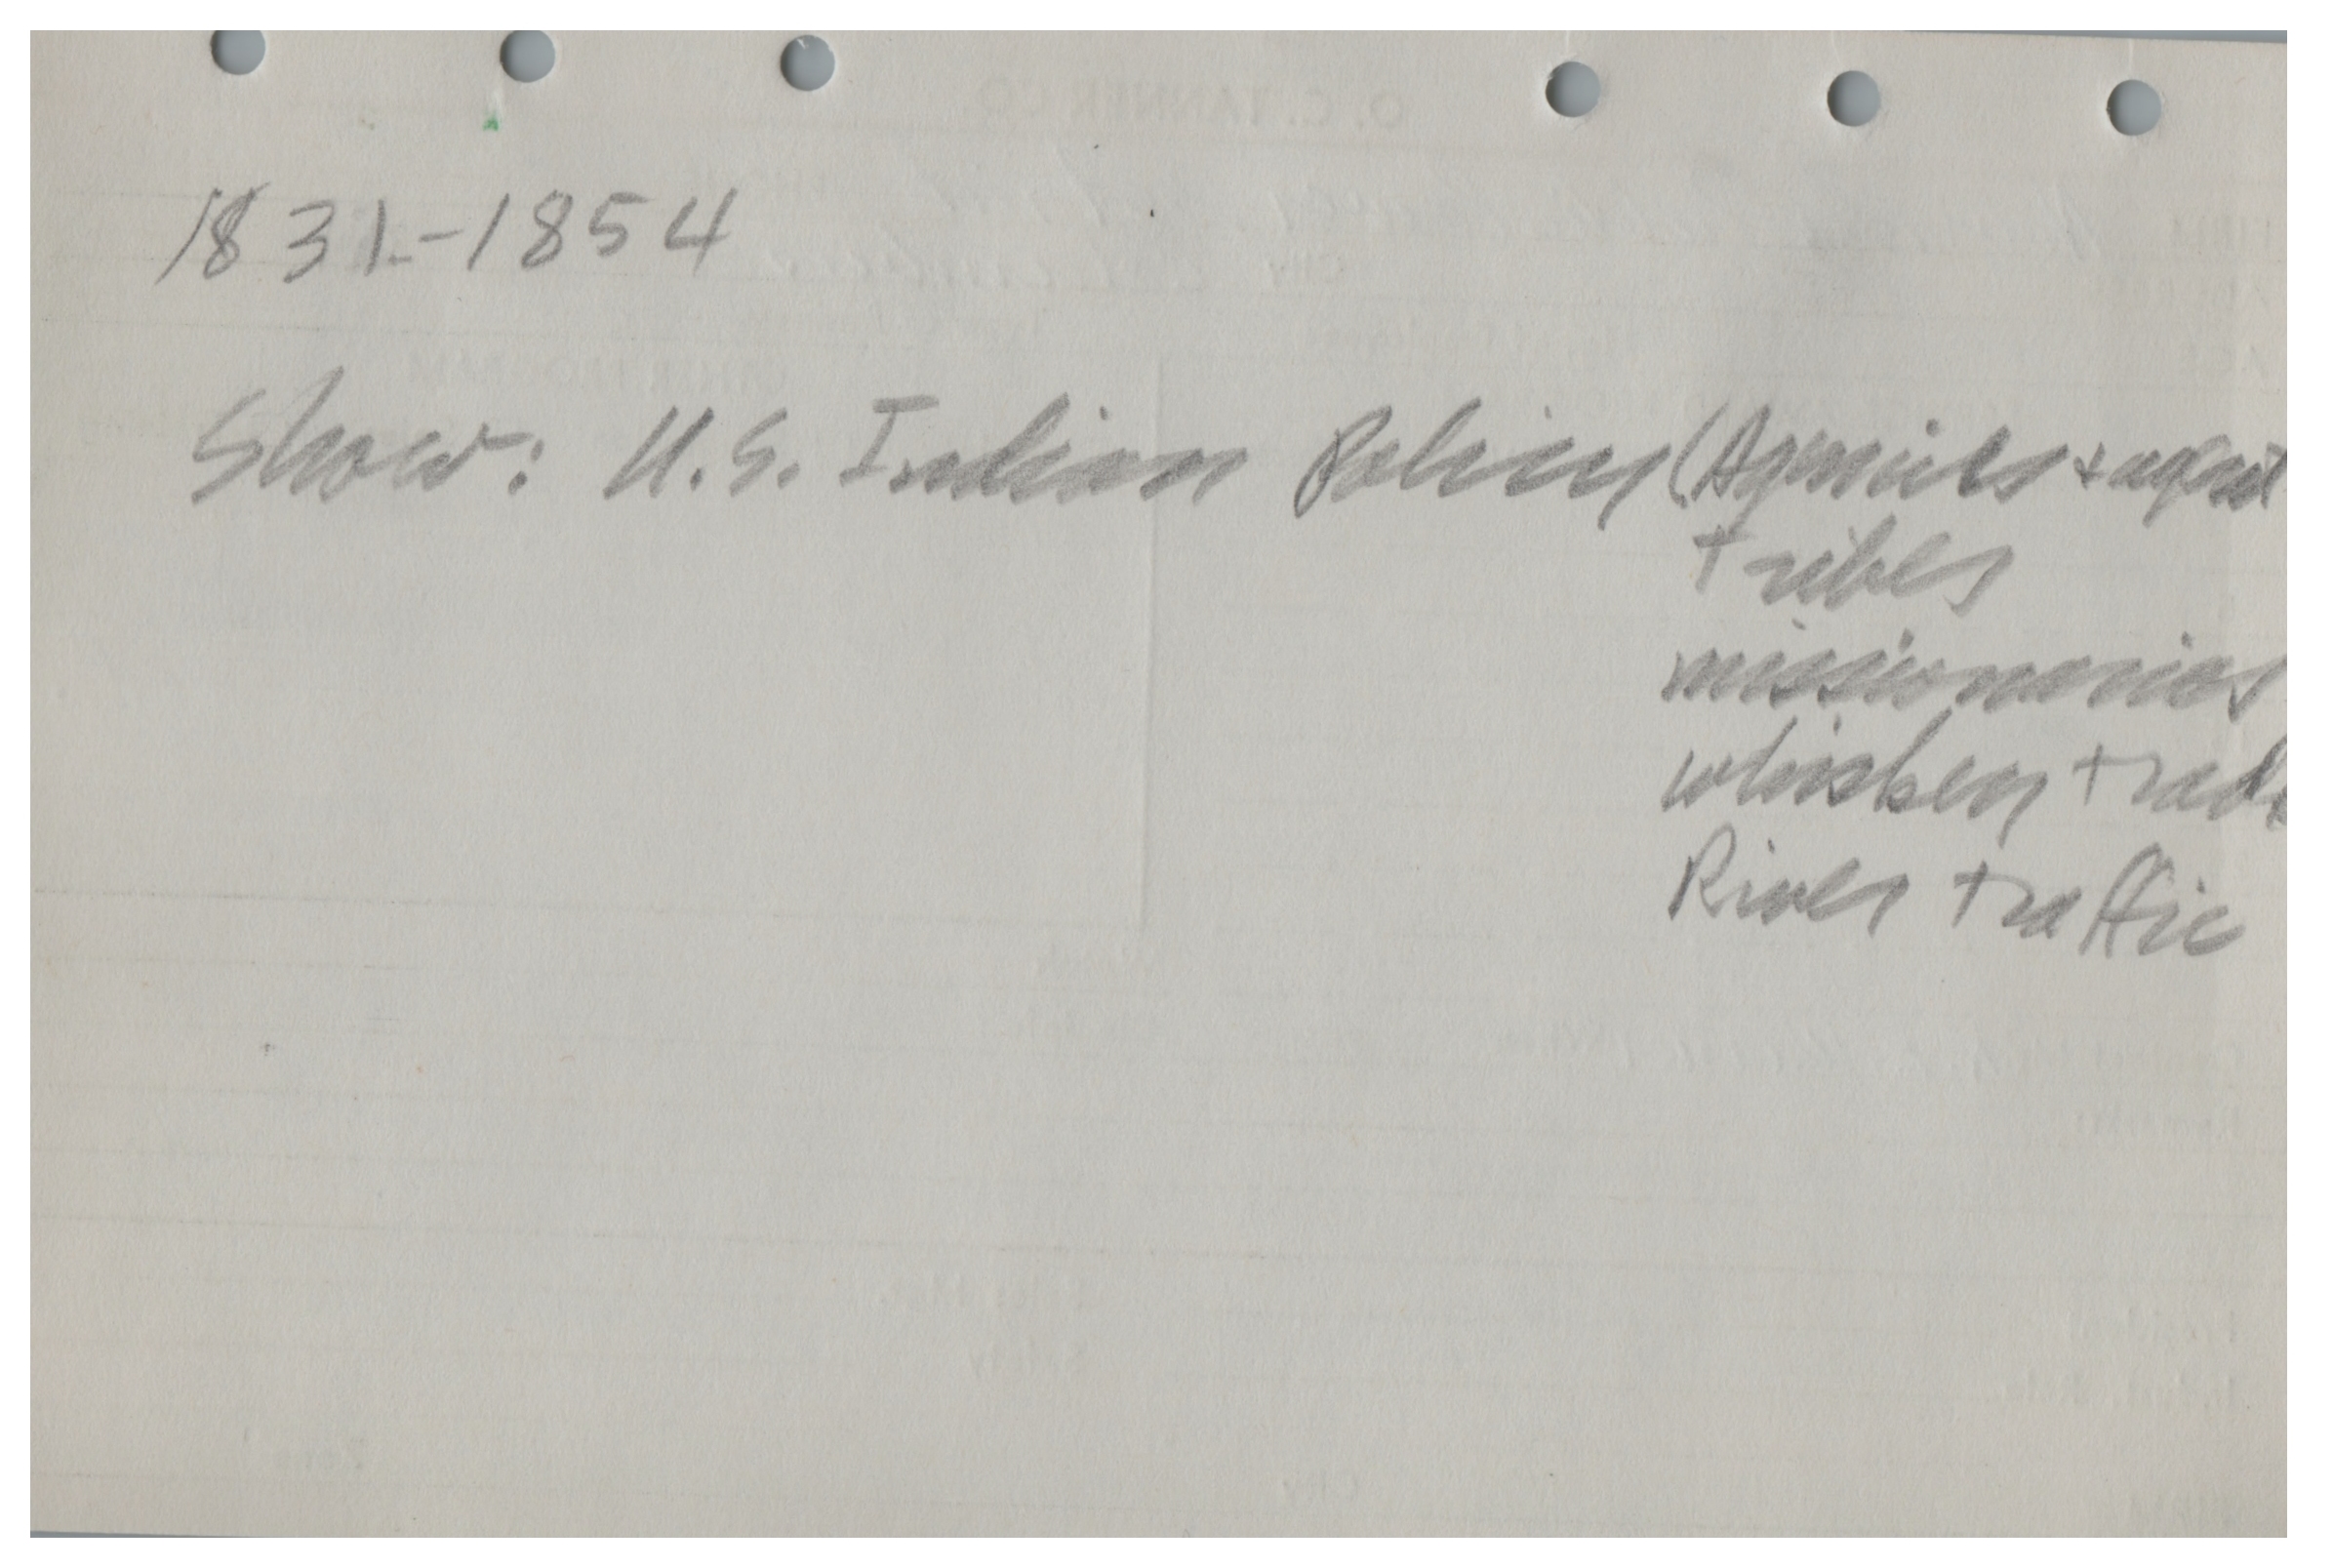 1831-1854
Show: U.S. Indian Policy (Agencies + agent
tribes
missionaries
whiskey trade
River traffic
O. C. TANNER CO.
City